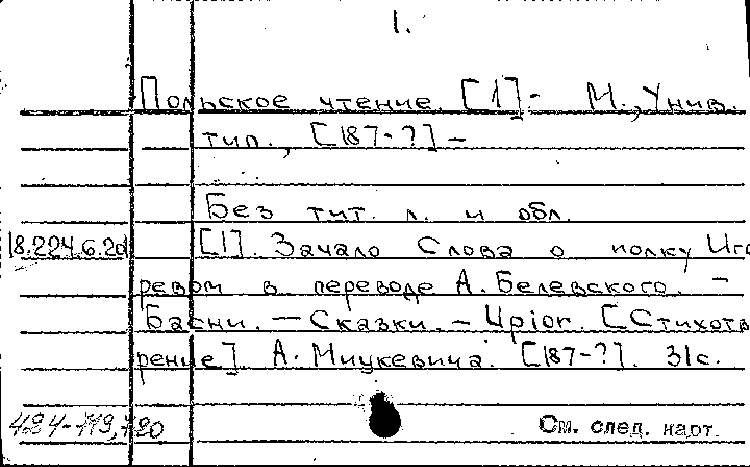 1.
Польское чтение. [1]- М., Унив.
тип., [187-?] –
Без тит. л. и обл.
18.224.6.2d [1]. Зачало Слова о полку Иго
ревом в переводе А. Белевского. –
Басни. – Сказки. – Upior. [Стихотв
рение] А. Мицкевича. [187-?]. 31с.
484-719,720 См. след. карт.